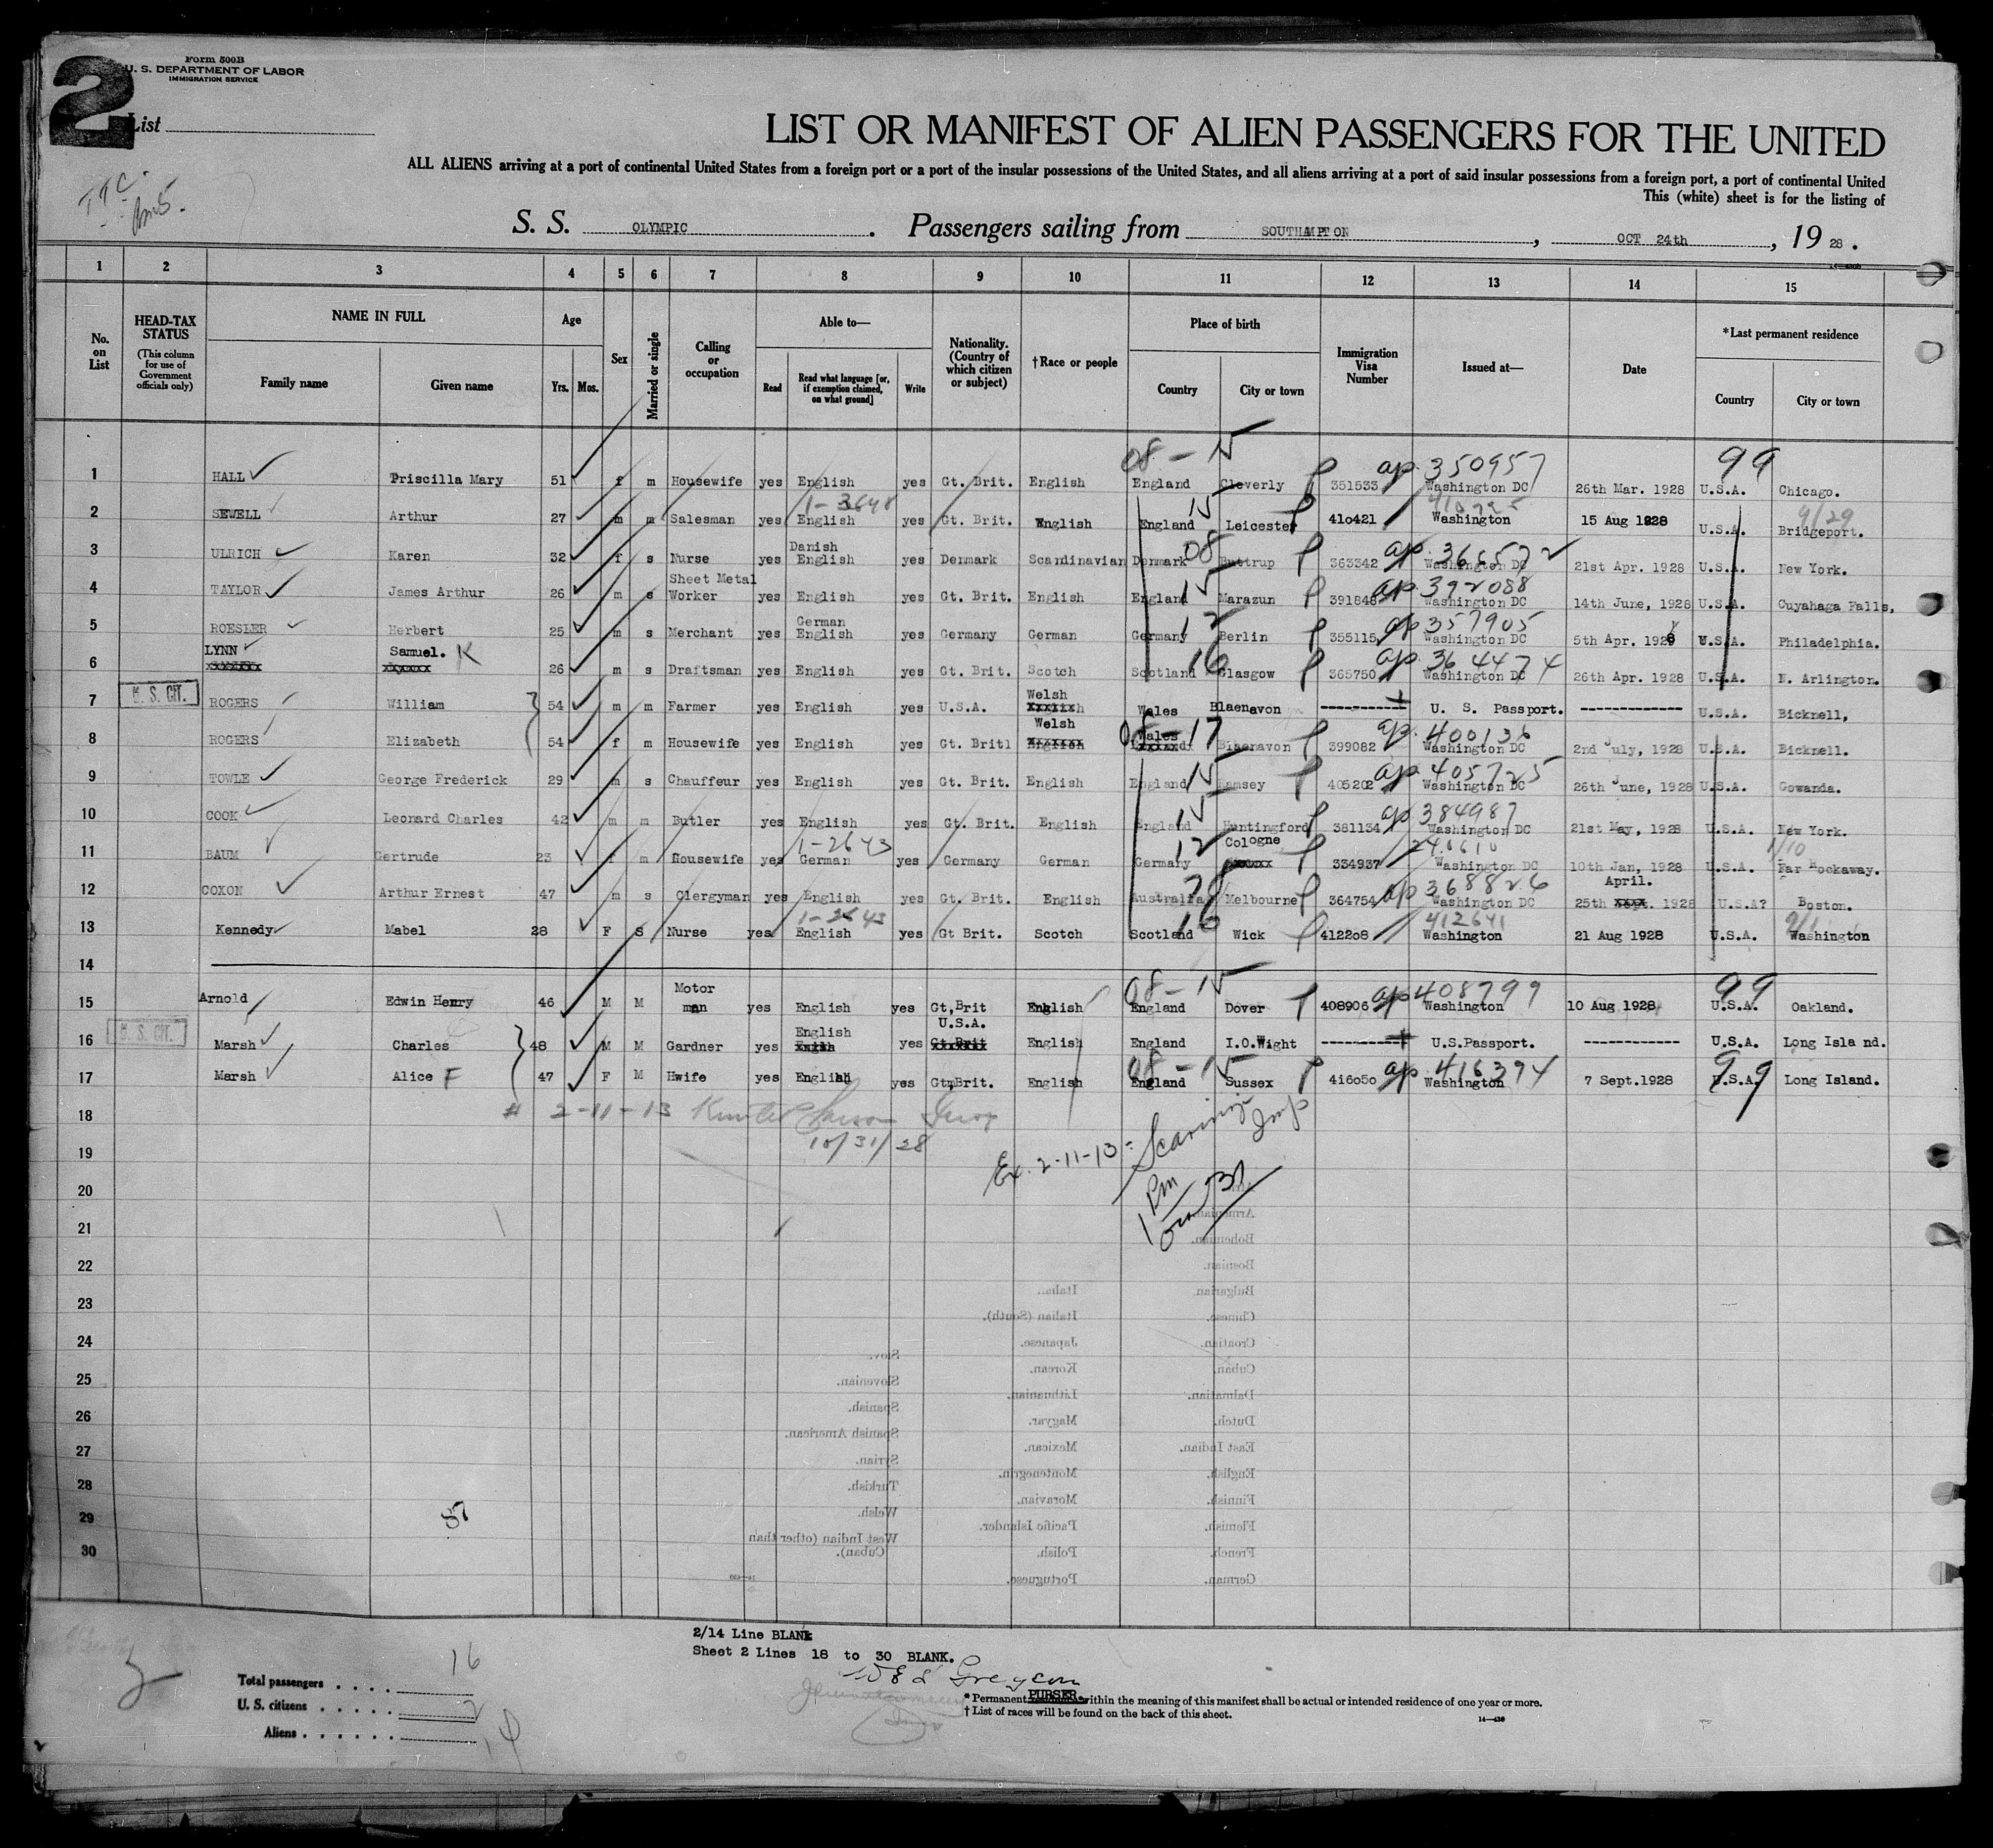 2
Form 500B
U. S. DEPARTMENT OF LABOR
IMMIGRATION SERVICE
List
LIST OR MANIFEST OF ALIEN PASSENGERS FOR THE UNITED
ALL ALIENS arriving at a port of continental United States from a foreign port or a port of the insular possessions of the United States, and all aliens arriving at a port of said insular possessions from a foreign port, a port of continental United
This (white) sheet is for the listing of
S. S. OLYMPIC. Passengers sailing from SOUTHAMPTON, OCT 24th, 19 28.
1 2 3 4 5 6 7 8 9 10 11 12 13 14 15
No. on List
HEAD-TAX STATUS
(This column for use of Government officials only)
NAME IN FULL
Family name Given name
Age
Yrs. Mos.
Sex
Married or single
Calling or occupation
Able to—
Read
Read what language [or, if exemption claimed, on what ground]
Write
Nationality. (Country of which citizen or subject)
†Race or people
Place of birth
Country City or town
Immigration Visa Number
Issued at—
Date
*Last permanent residence
Country City or town
08-15 ap. 350957 99
1 HALL Priscilla Mary 51 f m Housewife yes English yes Gt. Brit. English England Cleverly 351533 Washington DC 26th Mar. 1928 U.S.A. Chicago.
1-3648 15 410725 9/29
2 SEWELL Arthur 27 m m Salesman yes English yes Gt. Brit. English England Leicester 410421 Washington 15 Aug 1928 U.S.A. Bridgeport.
Danish 08 ap. 366572
3 ULRICH Karen 32 f s Nurse yes English yes Denmark Scandinavian Denmark Buttrup 363342 Washington DC 21st Apr. 1928 U.S.A. New York.
Sheet Metal 15 ap. 392088
4 TAYLOR James Arthur 26 m s Worker yes English yes Gt. Brit. English England Marazun 391848 Washington DC 14th June, 1928 U.S.A. Cuyahaga Falls,
German 12 ap 357905
5 ROESLER Herbert 25 m s Merchant yes English yes Germany German Germany Berlin 355115 Washington DC 5th Apr. 1928 U.S.A. Philadelphia.
LYNN Samuel. K 16 ap. 364474
6 26 m s Draftsman yes English yes Gt. Brit. Scotch Scotland Glasgow 365750 Washington DC 26th Apr. 1928 U.S.A. N. Arlington.
U. S. CIT. Welsh
7 ROGERS William 54 m m Farmer yes English yes U.S.A. Wales Blaenavon ---------- U. S. Passport. ------------ U.S.A. Bicknell,
Welsh Wales 08-17 ap. 400136
8 ROGERS Elizabeth 54 f m Housewife yes English yes Gt. Britl English Blaenavon 399082 Washington DC 2nd July, 1928 U.S.A. Bicknell.
15 ap 405725
9 TOWLE George Frederick 29 m s Chauffeur yes English yes Gt. Brit. English England Ramsey 405202 Washington DC 26th June, 1928 U.S.A. Gowanda.
15 ap 384987
10 COOK Leonard Charles 42 m m Butler yes English yes Gt. Brit. English England Huntingford 381134 Washington DC 21st May, 1928 U.S.A. New York.
1-2643 12 Cologne 1/10
11 BAUM Gertrude 23 f m Housewife yes German yes Germany German Germany 334937 Washington DC 10th Jan, 1928 U.S.A. Far Rockaway.
78 ap 368826 April.
12 COXON Arthur Ernest 47 m s Clergyman yes English yes Gt. Brit. English Australia Melbourne 364754 Washington DC 25th 1928 U.S.A? Boston.
1-2643 16 412641
13 Kennedy Mabel 28 F S Nurse yes English yes Gt Brit. Scotch Scotland Wick 412208 Washington 21 Aug 1928 U.S.A. Washington
14
Motor 08-15 ap 408799 99
15 Arnold Edwin Henry 46 M M man yes English yes Gt,Brit English England Dover 408906 Washington 10 Aug 1928 U.S.A. Oakland.
U. S. CIT. English U.S.A.
16 Marsh Charles 48 M M Gardner yes yes Gt.Brit English England I.O.Wight ---------- U.S.Passport. ------------ U.S.A. Long Isla nd.
08-15 ap. 416394 99
17 Marsh Alice F 47 F M Hwife yes English yes Gt,Brit. English England Sussex 416050 Washington 7 Sept.1928 U.S.A. Long Island.
18 # 2-11-13
10/31/28
19 Ex. 2-11-13:
20
21
22
23
24
25
26
27
28
29
30
Armenian.
Bohemian.
Bosnian.
Bulgarian.
Chinese.
Croatian.
Cuban.
Dalmatian.
Dutch.
East Indian.
English.
Finnish.
Flemish.
French.
German.
Italian.
Italian (South).
Japanese.
Korean.
Lithuanian.
Magyar.
Mexican.
Montenegrin.
Moravian.
Pacific Islander.
Polish.
Portuguese.
Slovenian.
Spanish.
Spanish American.
Syrian.
Turkish.
Welsh.
West Indian (other than Cuban).
2/14 Line BLANK
Sheet 2 Lines 18 to 30 BLANK.
PURSER.
Total passengers . . . . 16
U. S. citizens . . . . . 2
Aliens . . . . . . 14
* Permanent within the meaning of this manifest shall be actual or intended residence of one year or more.
† List of races will be found on the back of this sheet.
14—430